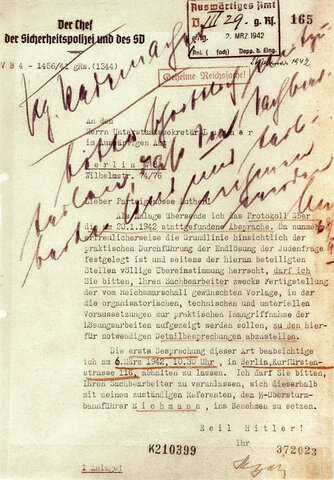 Der Chef
der Sicherheitspolizei und des SD
Auswärtiges Amt
D III 29. g. Rs.
2. MRZ 1942
Anl. ( fach) Dopp. d. Eing.
165
IV B 4 - 1456/41 gRs. (1344)
Februar 1942
Geheime Reichssache!
Pg. Rademacher
bitte schriftlich mitzu-
teilen, daß Sie Sachbear-
beiter sind und teil-
nehmen
werden
An den
Herrn Unterstaatssekretär L u t h e r
im Auswärtigen Amt
Berlin
Wilhelmstr. 74/76
Lieber Parteigenosse Luther!
Als Anlage übersende ich das Protokoll über
die am 20.1.1942 stattgefundene Absprache. Da nunmehr
erfreulicherweise die Grundlinie hinsichtlich der
praktischen Durchführung der Endlösung der Judenfrage
festgelegt ist und seitens der hieran beteiligten
Stellen völlige Übereinstimmung herrscht, darf ich
Sie bitten, Ihren Sachbearbeiter zwecks Fertigstellung
der vom Reichsmarschall gewünschten Vorlage, in der
die organisatorischen, technischen und materiellen
Voraussetzungen zur praktischen Inangriffnahme der
Lösungsarbeiten aufgezeigt werden sollen, zu den hier-
für notwendigen Detailbesprechungen abzustellen.
Die erste Besprechung dieser Art beabsichtige
ich am 6. März 1942, 10.30 Uhr, in Berlin, Kurfürsten-
strasse 116, abhalten zu lassen. Ich darf Sie bitten,
Ihren Sachbearbeiter zu veranlassen, sich dieserhalb
mit meinem zuständigen Referenten, dem SS-Obersturm-
bannführer E i c h m a n n , ins Benehmen zu setzen.
Heil Hitler!
Ihr
K210399
372023
1 Anlage!